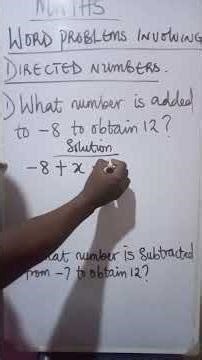 MATHS
WORD PROBLEMS INVOLVING
DIRECTED NUMBERS.
1) What number is added
to -8 to obtain 12?
Solution
-8 + x
number is Subtracted
from -7 to obtain 12?